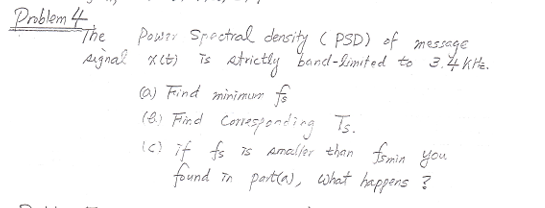 Problem 4
The Power Spectral density (PSD) of message
signal x(t) is strictly band-limited to 3.4 KHz.
(a) Find minimum fs
(b) Find Corresponding Ts.
(c) if fs is smaller than fsmin you
found in part(a), what happens ?